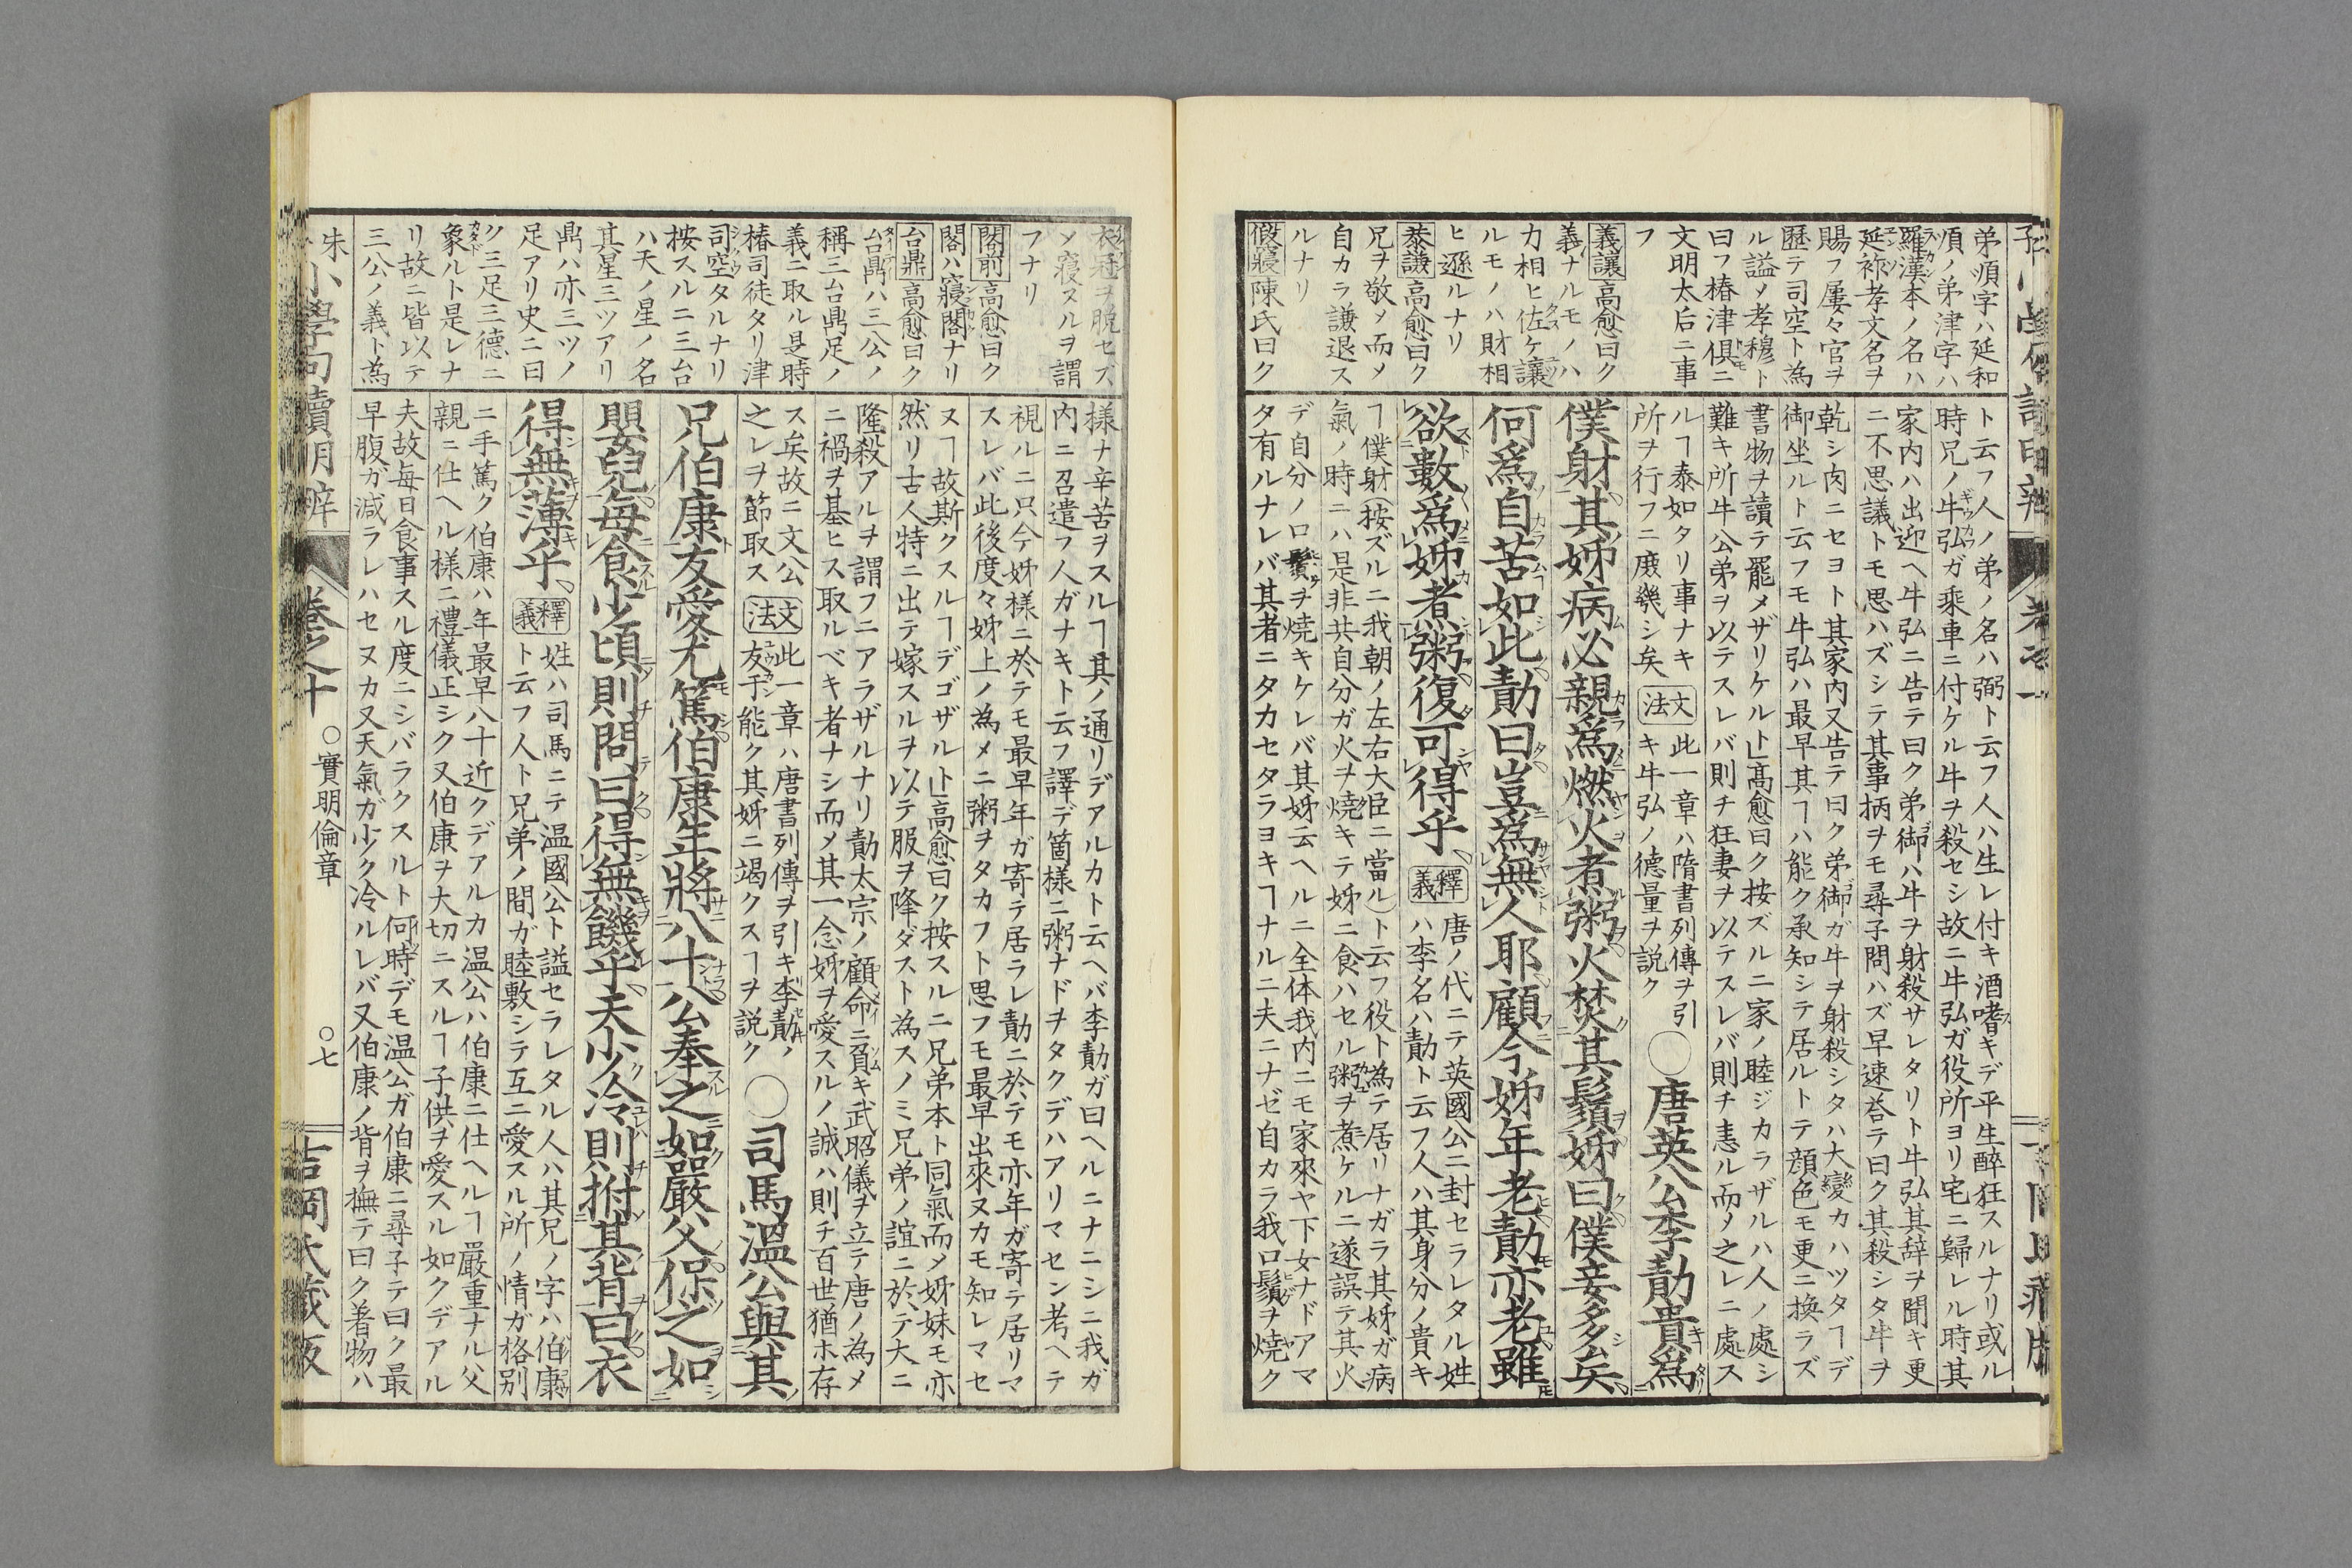 弟順字ハ延和
順ノ弟津字ハ
羅漢本ノ名ハ
延祚孝文名ヲ
賜フ屢々官ヲ
歷テ司空ト為
ル謚ソ孝穆ト
曰フ椿津俱ニ
文明太后ニ事
フ
義讓高愈曰ク
義ナルモノハ
力相ヒ佐ケ讓
ルモノハ財相
ヒ遜ルナリ
恭謙高愈曰ク
兄ヲ敬メ而メ
自カラ謙退ス
ルナリ
假寢陳氏曰ク
ト云フ人ノ弟ノ名ハ弼ト云フ人ハ生レ付キ酒嗜キデ平生醉狂スルナリ或ル
時兄ノ牛弘ガ乘車ニ付ケル牛ヲ殺セシ故ニ牛弘ガ役所ヨリ宅ニ歸レル時其
家内ハ出迎ヘ牛弘ニ告テ曰ク弟御ハ牛ヲ射殺サレタリト牛弘其辞ヲ聞キ更
ニ不思議トモ思ハズシテ其事柄ヲモ尋子問ハズ早速荅テ曰ク其殺シタ牛ヲ
乾シ肉ニセヨト其家内又告テ曰ク弟御ガ牛ヲ射殺シタハ大變カハツタヿデ
御坐ルト云フモ牛弘ハ最早其ヿハ能ク承知シテ居ルトテ顔色モ更ニ換ラズ
書物ヲ讀テ罷メザリケルト」高愈曰ク按ズルニ家ノ睦ジカラザルハ人ノ處シ
難キ所牛公弟ヲ以テスレバ則チ狂妻ヲ以テスレバ則チ恚ル而メ之レニ處ス
ルヿ泰如タリ事ナキ
所ヲ行フニ庶幾シ矣
文法
此一章ハ隋書列傳ヲ引
キ牛弘ノ德量ヲ說ク
○唐英公李勣貴爲
僕射其姊病必親爲燃火煮粥火焚其鬚姊曰僕妾多矣
何爲自苦如此勣曰豈爲無人耶顧今姊年老勣亦老雖
欲數爲姊煮粥復可得乎
釋義
唐ノ代ニテ英國公ニ封セラレタル姓
ハ李名ハ勣ト云フ人ハ其身分ノ貴キ
ヿ僕射(按ズルニ我朝ノ左右大臣ニ當ル)ト云フ役ト為テ居リナガラ其姊ガ病
氣ノ時ニハ是非共自分ガ火ヲ燒キテ姊ニ食ハセル粥ヲ煮ケルニ遂誤テ其火
デ自分ノ口鬚ヲ燒キケレバ其姊云ヘルニ全体我内ニモ家來ヤ下女ナドアマ
タ有ルナレバ其者ニタカセタラヨキヿナルニ夫ニナゼ自カラ我口鬚ヲ燒ク
衣冠ヲ脫セズ
メ寢スルヲ謂
フナリ
閤前高愈曰ク
閤ハ寢閤ナリ
台鼎高愈曰ク
台鼎ハ三公ノ
稱三台鼎足ノ
義ニ取ル是時
椿司徒タリ津
司空タルナリ
按スルニ三台
ハ天ノ星ノ名
其星三ツアリ
鼎ハ亦三ツノ
足アリ史ニ曰
ク三足三德ニ
象ルト是レナ
リ故ニ皆以テ
三公ノ義ト為
樣ナ辛苦ヲスルヿ其ノ通リデアルカト云ヘバ李勣ガ曰ヘルニナニシニ我ガ
内ニ召遣フ人ガナキト云フ譯デ箇樣ニ粥ナドヲタクデハアリマセン考ヘテ
視ルニ只今姊樣ニ於テモ最早年ガ寄テ居ラレ勣ニ於テモ亦年ガ寄テ居リマ
スレバ此後度々姊上ノ為メニ粥ヲタカフト思フモ最早出來ヌカモ知レマセ
ヌヿ故斯クスルヿデゴザルト」高愈曰ク按スルニ兄弟本ト同氣而メ姊妹モ亦
然リ古人特ニ出テ嫁スルヲ以テ服ヲ降ダスト為スノミ兄弟ノ誼ニ於テ大ニ
隆殺アルヲ謂フニアラザルナリ勣太宗ノ顧命ニ負キ武昭儀ヲ立テ唐ノ為メ
ニ禍ヲ基ヒス取ルベキ者ナシ而メ其一念姊ヲ愛スルノ誠ハ則チ百世猶ホ存
ス矣故ニ文公
之レヲ節取ス
文法
此一章ハ唐書列傳ヲ引キ李勣ノ
友于能ク其姊ニ竭クスヿヲ說ク
○司馬溫公與其
兄伯康友愛尤篤伯康年將八十公奉之如嚴父保之如
嬰兒每食少頃則問曰得無饑乎天少冷則拊其背曰衣
得無薄乎
釋義
姓ハ司馬ニテ温國公ト謚セラレタル人ハ其兄ノ字ハ伯康
ト云フ人ト兄弟ノ間ガ睦敷シテ互ニ愛スル所ノ情ガ格别
ニ手篤ク伯康ハ年最早八十近クデアルカ温公ハ伯康ニ仕ヘルヿ嚴重ナル父
親ニ仕ヘル樣ニ禮儀正シク又伯康ヲ大切ニスルヿ子供ヲ愛スル如クデアル
夫故每日食事スル度ニシバラクスルト何時デモ温公ガ伯康ニ尋子テ曰ク最
早腹ガ減ラレハセヌカ又天氣ガ少ク冷ルレバ又伯康ノ背ヲ撫テ曰ク着物ハ
小學句讀明辨 卷之十 ○實明倫章 ○七 吉岡氏藏版